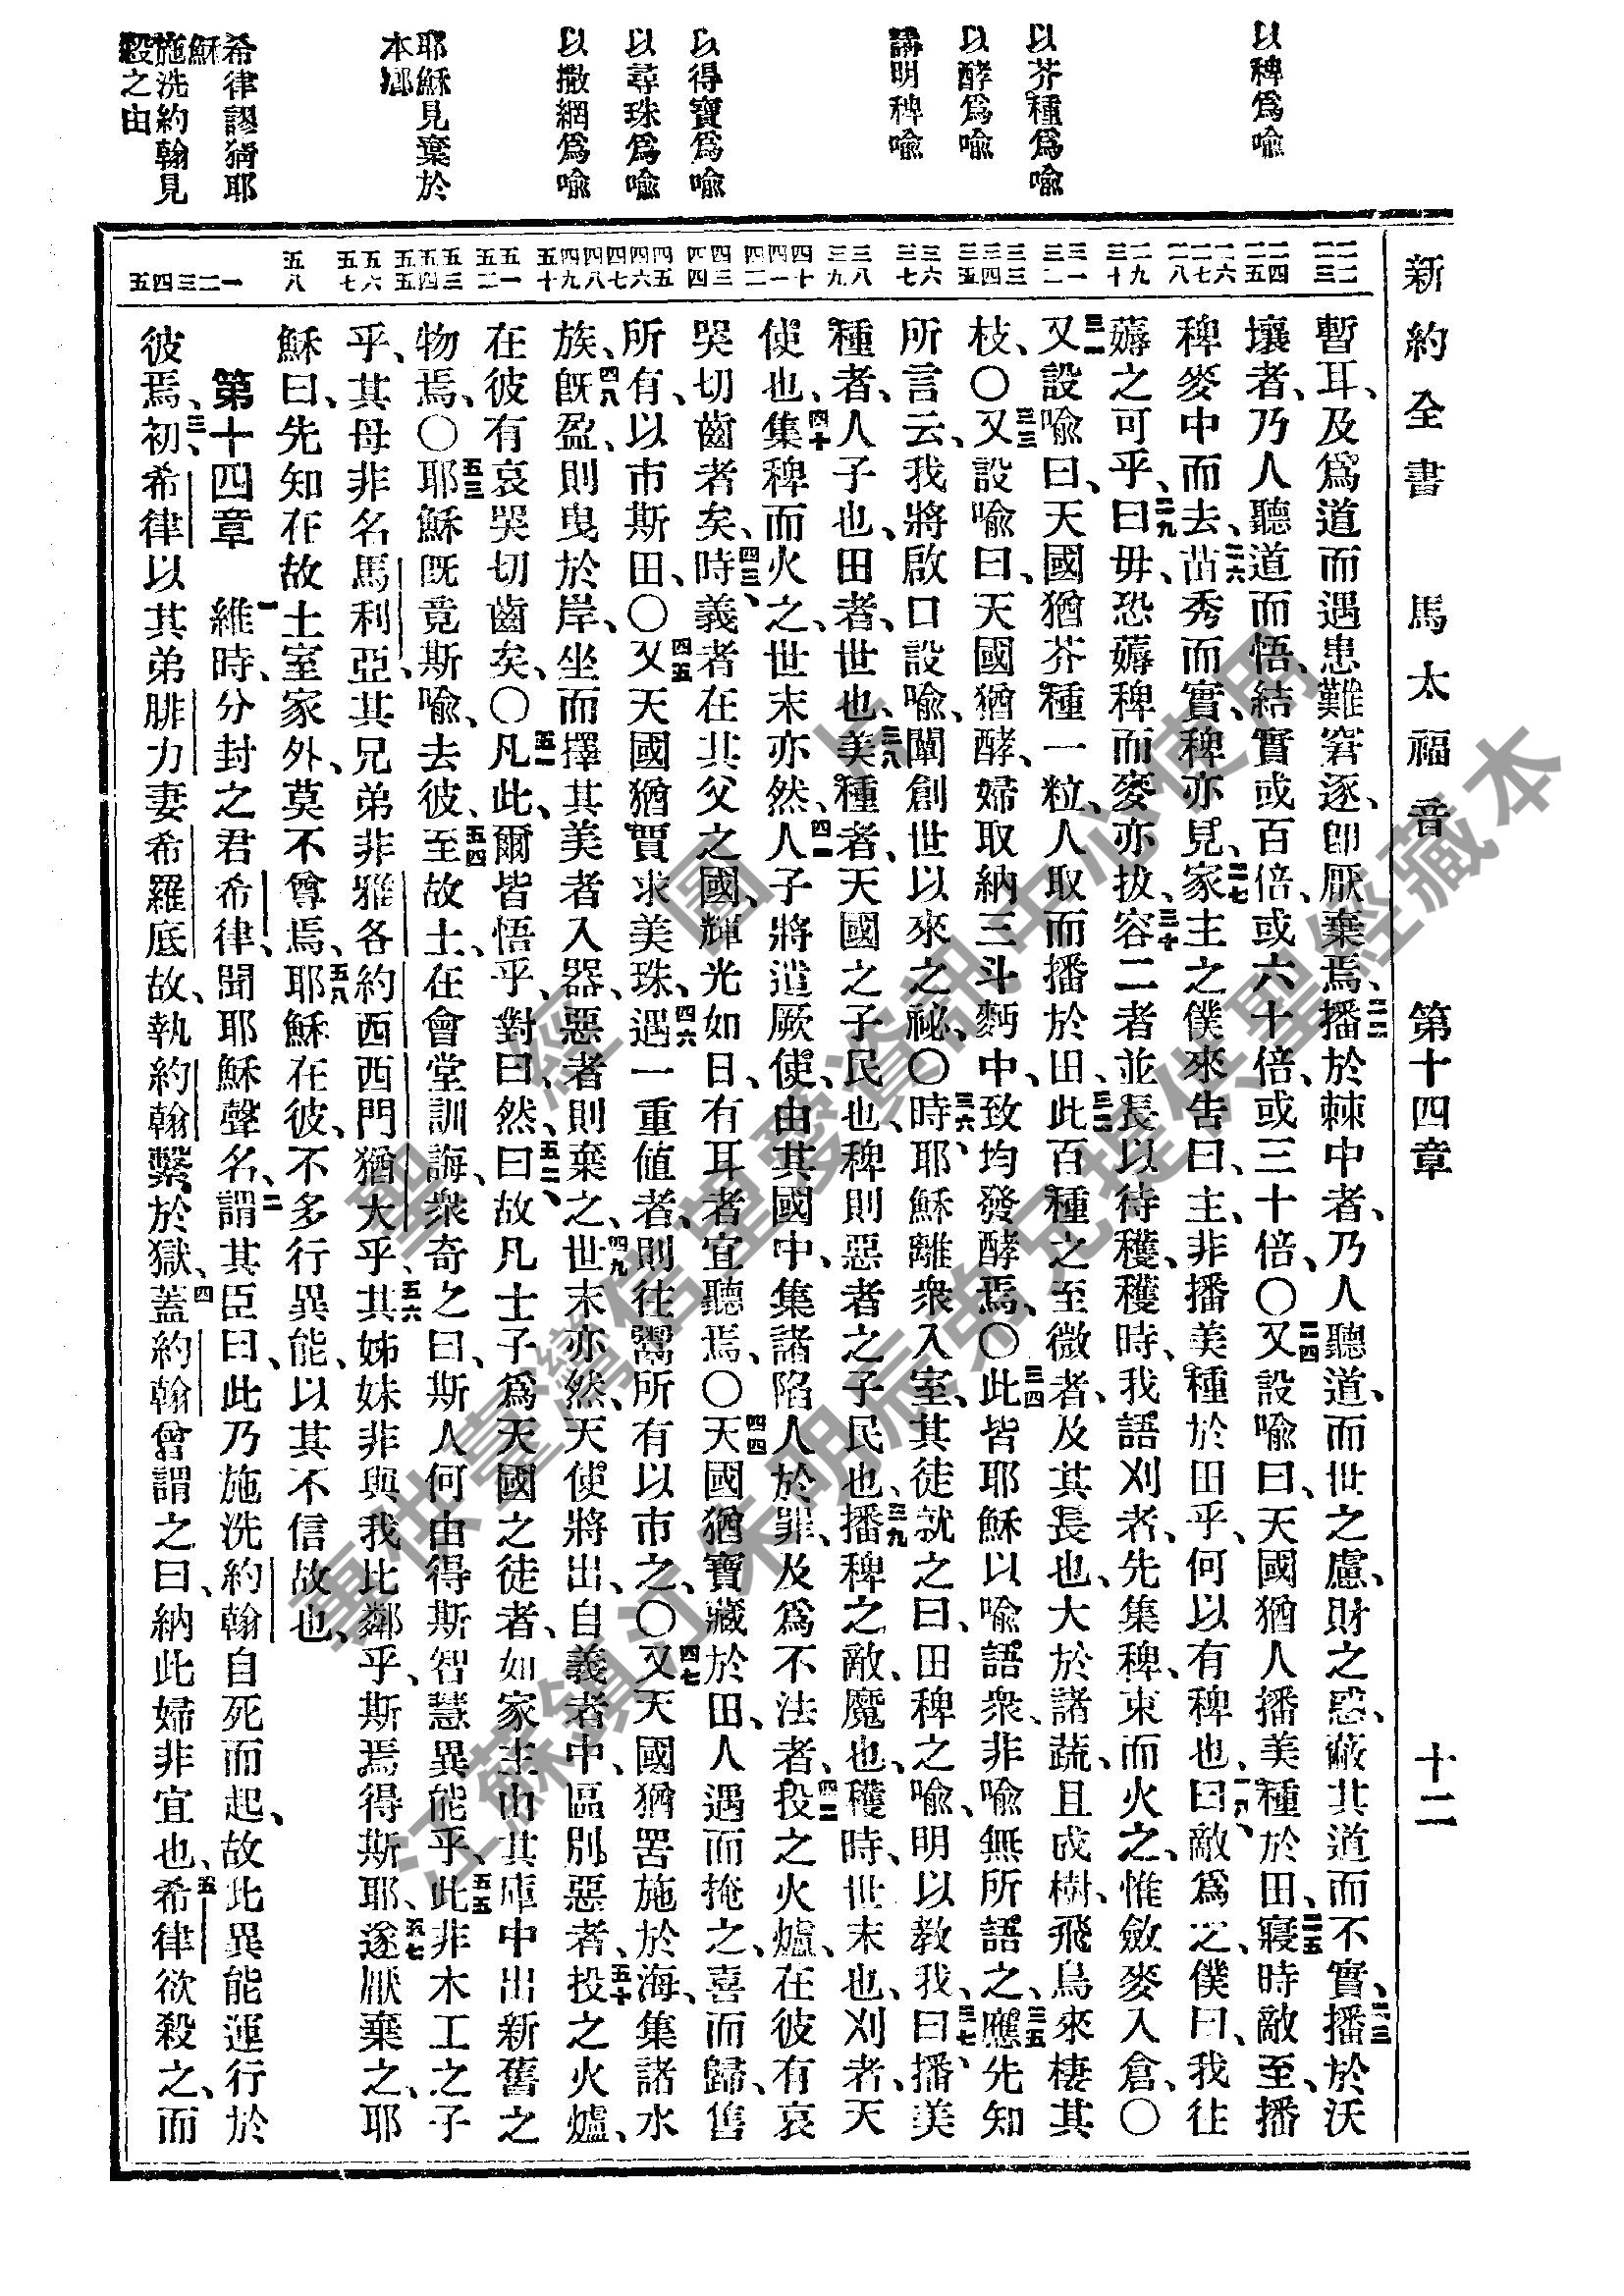 新約全書 馬太福音 第十四章 十二
以稗爲喻
以芥種爲喻
以酵爲喻
講明稗喻
以得寶爲喻
以尋珠爲喻
以撒網爲喻
耶穌見棄於
本鄉
希律謬猶耶
穌
施洗約翰見
殺之由
二二 二三
二四 二五
二六 二七 二八
二九 三十
三一 三二
三三 三四 三五
三六 三七
三八 三九
四十 四一 四二
四三 四四
四五 四六 四七 四八 四九 五十
五一 五二
五三 五四 五五
五六 五七
五八
一 二 三 四 五
暫耳、及爲道而遇患難窘逐、卽厭棄焉、二二播於棘中者、乃人聽道、而世之慮、財之惑、蔽其道而不實、二三播於沃
壤者、乃人聽道而悟、結實或百倍、或六十倍、或三十倍、〇二四又設喻曰、天國猶人播美種於田、二五寢時敵至、播
稗麥中而去、二六苗秀而實、稗亦見、二七家主之僕來告曰、主、非播美種於田乎、何以有稗也、二八曰、敵爲之、僕曰、我往
薅之可乎、二九曰、毋、恐薅稗而麥亦拔、三十容二者並長、以待穫、穫時、我語刈者、先集稗、束而火之、惟斂麥入倉、〇
三一又設喻曰、天國猶芥種一粒、人取而播於田、三二此百種之至微者、及其長也、大於諸蔬、且成樹、飛鳥來棲其
枝、〇三三又設喻曰、天國猶酵、婦取納三斗麪中、致均發酵焉、〇三四此皆耶穌以喻語衆、非喻無所語之、三五應先知
所言云、我將啟口設喻、闡創世以來之祕、〇三六時、耶穌離衆入室、其徒就之曰、田稗之喻、明以教我、三七曰、播美
種者、人子也、田者、世也、三八美種者、天國之子民也、稗則惡者之子民也、三九播稗之敵、魔也、穫時、世末也、刈者、天
使也、四十集稗而火之、世末亦然、四一人子將遣厥使、由其國中、集諸陷人於罪、及爲不法者、四二投之火爐、在彼有哀
哭切齒者矣、四三時、義者在其父之國、輝光如日、有耳者宜聽焉、〇四四天國猶寶藏於田、人遇而掩之、喜而歸、售
所有、以市斯田、〇四五又天國猶賈求美珠、四六遇一重值者、則往鬻所有以市之、〇四七又天國猶罟施於海、集諸水
族、四八旣盈、則曳於岸、坐而擇其美者入器、惡者則棄之、四九世末亦然、天使將出、自義者中、區別惡者、五十投之火爐、
在彼有哀哭切齒矣、〇五一凡此、爾皆悟乎、對曰、然、五二曰、故凡士子爲天國之徒者、如家主由其庫中出新舊之
物焉、〇五三耶穌旣竟斯喻、去彼、五四至故土、在會堂訓誨、衆奇之曰、斯人何由得斯智慧異能乎、五五此非木工之子
乎、其母非名馬利亞、其兄弟非雅各約西西門猶大乎、五六其姊妹非與我比鄰乎、斯焉得斯耶、五七遂厭棄之、耶
穌曰、先知在故土室家外、莫不尊焉、五八耶穌在彼、不多行異能、以其不信故也、
第十四章 一維時、分封之君希律、聞耶穌聲名、二謂其臣曰、此乃施洗約翰自死而起、故此異能運行於
彼焉、三初、希律以其弟腓力妻希羅底故、執約翰繫於獄、四蓋約翰曾謂之曰、納此婦非宜也、五希律欲殺之、而
聖經圖片
專供臺灣信望愛資訊中心使用
江蘇鎮江朱明辰弟兄提供聖經藏本